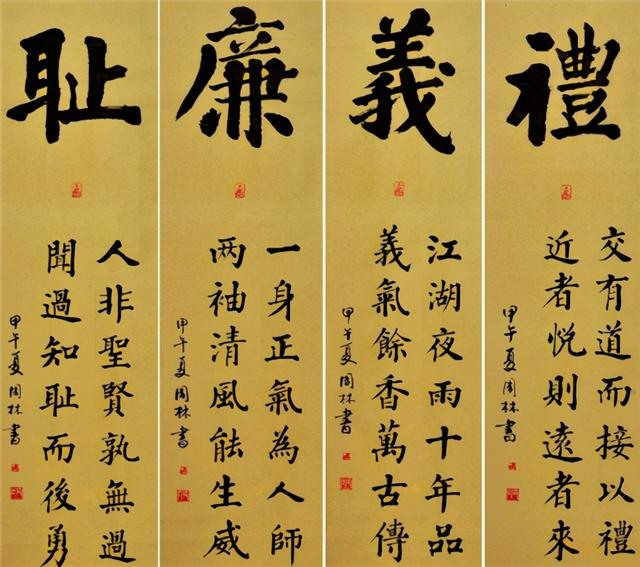 禮
交有道而接以禮
近者悅則遠者來
甲午夏周林書
義
江湖夜雨十年品
義氣餘香萬古傳
甲午夏周林書
廉
一身正氣為人師
两袖清風能生威
甲午夏周林書
耻
人非聖賢孰無過
聞過知耻而後勇
甲午夏周林書